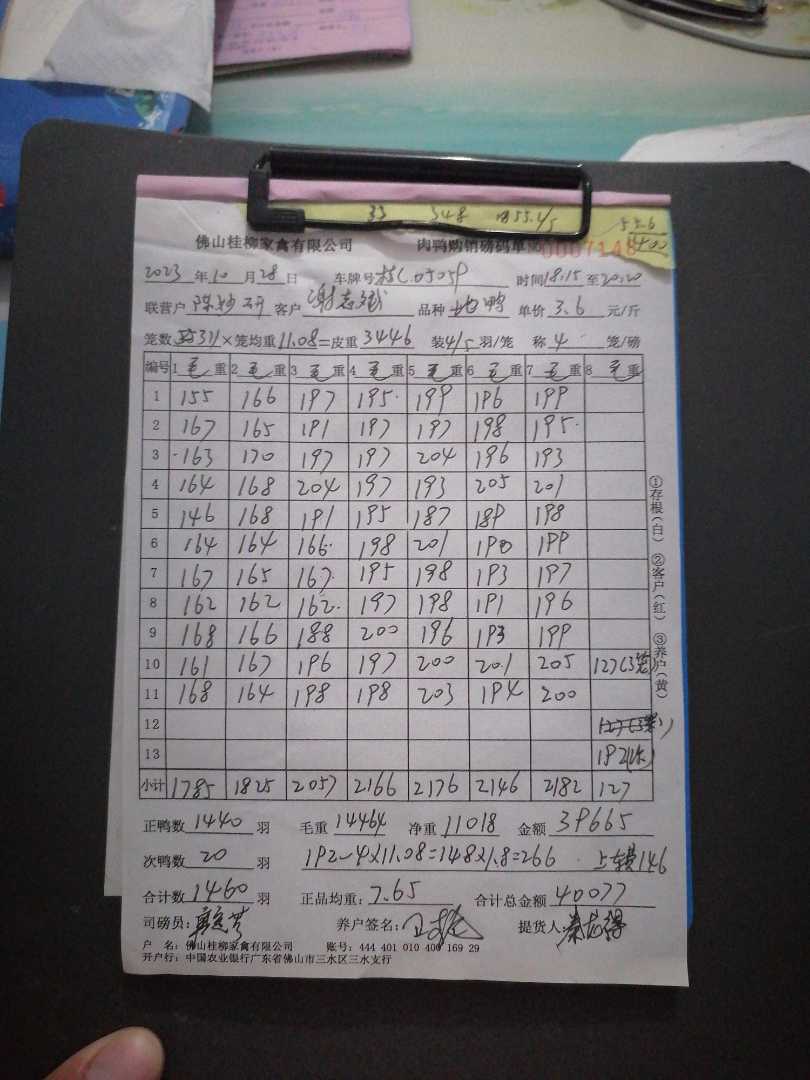 33 348
佛山桂柳家禽有限公司 肉鸭购销磅码单 0007148
2023年10月28日 车牌号 时间18:15至20:20
联营户 客户谢志斌 品种 鸭 单价3.6元/斤
笼数 311×笼均重11.08=皮重3446 装4/5羽/笼 称4笼/磅
编号 1毛重 2毛重 3毛重 4毛重 5毛重 6毛重 7毛重 8毛重
1 155 166 197 195 199 196 199
2 167 165 191 197 197 198 195
3 163 170 197 197 204 196 193
4 164 168 204 197 193 205 201
5 146 168 191 195 187 189 198
6 164 164 166 198 201 190 199
7 167 165 167 195 198 193 197
8 162 162 162 197 198 191 196
9 168 166 188 200 196 193 199
10 161 167 196 197 200 201 205 127(3笼)
11 168 164 198 198 203 194 200
12 127(3笼)
13 192(次)
小计 1785 1825 2057 2166 2176 2146 2182 127
正鸭数1440羽 毛重14464 净重11018 金额39665
次鸭数20羽 192-4×11.08=148×1.8=266 146
合计数1460羽 正品均重:7.65 合计总金额40077
司磅员: 养户签名: 提货人:
户 名:佛山桂柳家禽有限公司 账号:444 401 010 400 169 29
开户行:中国农业银行广东省佛山市三水区三水支行
①存根(白) ②客户(红) ③养户(黄)